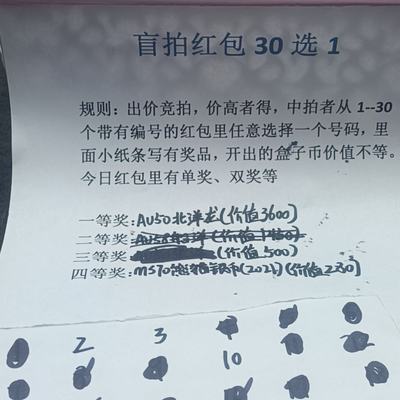 盲拍红包30选1
规则：出价竞拍，价高者得，中拍者从1--30
个带有编号的红包里任意选择一个号码，里
面小纸条写有奖品，开出的盒子币价值不等。
今日红包里有单奖、双奖等
一等奖:AU50北洋龙(价值3600)
二等奖:
三等奖:(价值500)
四等奖:MS70熊猫银币(2021)(价值230)
2 3
10